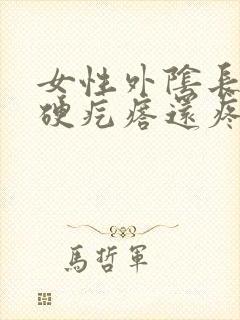 女性外陰長
硬疙瘩還疼
馬哲軍